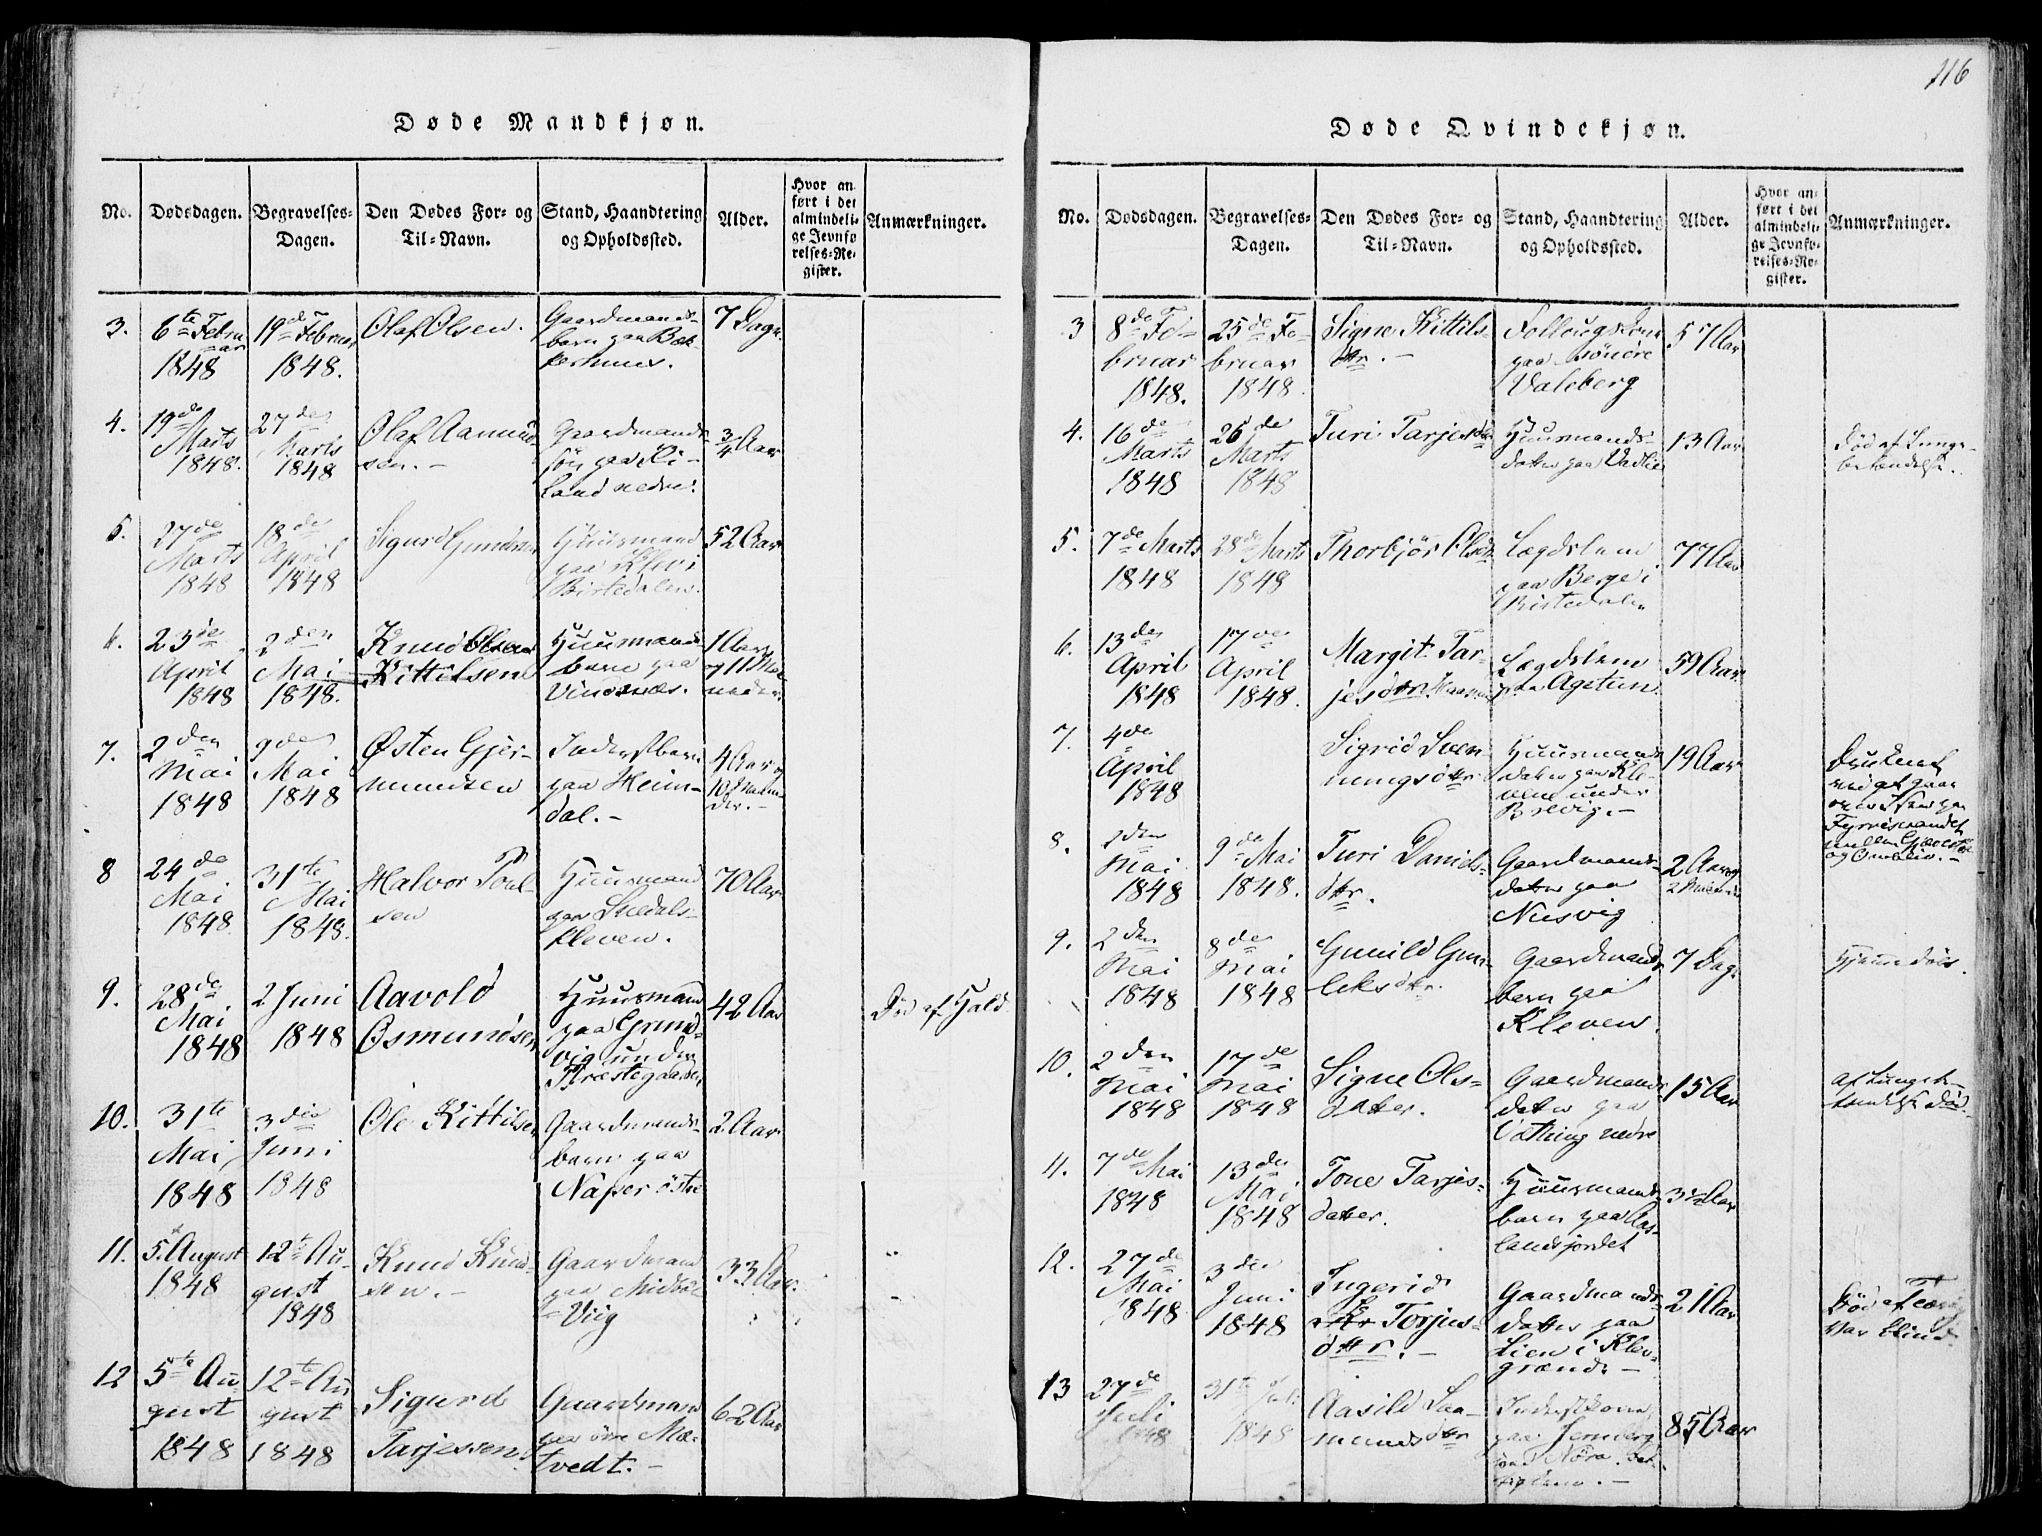 116
Døde Mandkjøn.
No.
Dødsdagen.
Begravelses-
Dagen.
Den Dødes For- og
Til-Navn.
Stand, Haandtering
og Opholdssted.
Alder.
Hvor an-
ført i det
almindeli-
ge Jevnfø-
relses-Re-
gister.
Anmærkninger.
3.
6te Febru
ar
1848
19de Februar
1848.
Olaf Olsen.
Gaardmands-
barn paa Bæk-
kerhuus.
7 Dage
4.
19de
Marts
1848.
27de
Marts
1848
Olaf Aamund-
sen.-
Gaardmands-
søn paa
land nedre.
3/4 Aar
5.
27de
Marts
1848
18de
April
1848
Sigurd Gundersen
Huusmand
paa Klevi
Bistedalen.
52 Aar
6.
23de
April
1848
2den
Mai
1848.
Knud Olsen
Kittilsen
Huusmands
barn paa
Vindsnæs.
1 Aar
og 11 Maa
neder.
7.
2den
Mai
1848
9de
Mai
1848
Østen Gjer-
mundsen
Inderstbarn
paa Heim-
dal.-
4 Aar og
10 Maane
der.-
8
24de
Mai
1848
31te
Mai
1848.
Halvor Poul-
sen
Huusmand
paa
kleven.
70 Aar
9.
28de
Mai
1848
2 Juni
1848
Aavold
Osmundsen
Huusmand
paa Grund-
vig under
Præstegaarden
42 Aar
Død af Fald.
10.
31te
Mai
1848
3die
Juni
1848
Ole Kittilsen
Gaardmands-
barn paa
Naper østre
2 Aar
11.
5. August
1848
12te Au-
gust
1848
Knud Knud-
sen.-
Gaardmand
paa Midbø
Viig
33 Aar.
12
5te Au
gust
1848
12te Au
gust
1848
Sigurd
Tarjessen
Gaardmand
paa øvre Mæ-
tvedt.-
62 Aar
Døde Qvindekjøn.
No.
Dødsdagen.
Begravelses-
Dagen.
Den Dødes For- og
Til-Navn.
Stand, Haandtering
og Opholdssted.
Alder.
Hvor an-
ført i det
almindeli-
ge Jevnfø-
relses-Re-
gister.
Anmærkninger.
3
8de Fe-
bruar
1848.
25de Fe-
bruar
1848.
Signe Kittils-
dtr.-
Følougskone
paa søndre
Valeberg
57 Aar
4.
16de
Marts
1848
26de
Marts
1848
Turi Tarjesdtr
Huusmands-
datter paa Vadlie
13 Aar
Død af Lunge-
betændelse.
5.
7de Marts
1848
28de Marts
1848
Thorbjør Olsdtr
Lægdslem
paa Berge i
Bistedalen
77 Aar
6.
13de
April
1848
17de
April
1848.
Margit Tar-
jesdtr.
Lægdslem
paa
59 Aar
7.
4de
April
1848
Sigrid Sven-
nungsdtr
Huusmands
datter paa Kle-
vene under
Brevig.-
19 Aar
Druknet
ved at gaae
over Isen paa
og
8.
2den
Mai
1848
9de Mai
1848.
Turi Daniels-
dtr.
Gaardmands-
datter paa
Nusvig
2 Aar og
2 Maaneder
9.
2den
Mai
1848
8de
Mai
1848
Gunild Gun-
leksdtr.
Gaardmands
barn paa
Kleven.
7 Dage
Hjemmedøbt.
10.
2den
Mai
1848
17de
Mai
1848
Signe Ols-
datter.
Gaardmands
datter paa
nedre
15 Aar
af Lungebe-
tændelse død.
11.
7de Mai
1848
13de
Mai
1848
Tone Tarjes-
datter.
Huusmands
barn paa Aas-
landsjordet
3½ Aar
12.
27de
Mai
1848
3die
Juni
1848
Ingerid
Torjus-
dttr.-
Gaardmands-
datter paa
Lien i Klev-
grænd.-
21 Aar
Død af
Var blind
13
27de
Juli
1848
31te Juli
1848
Aasild Saa-
mundsdtr
Inderstkone
paa
85 Aar